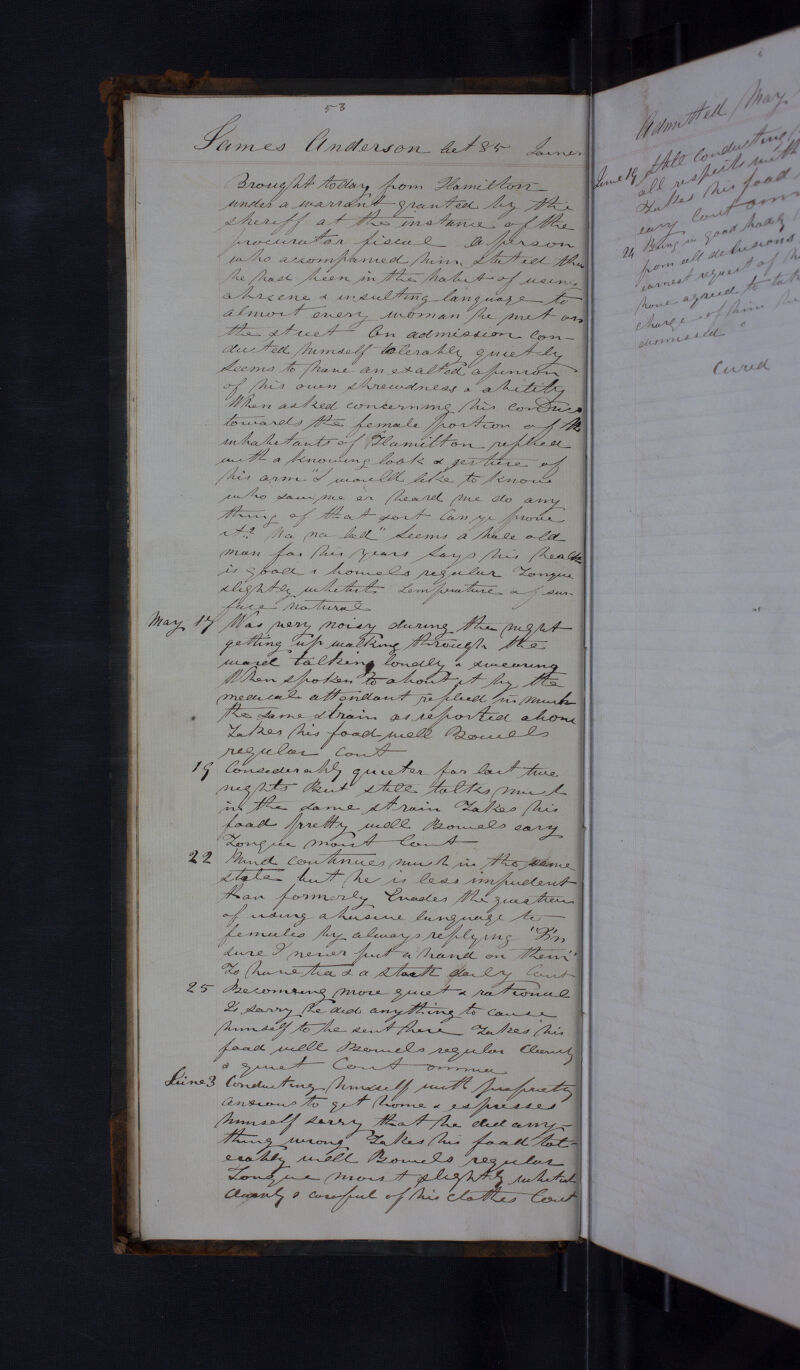 53
James Anderson Aet 85 Joiner
Brought today from Hamilton
under a warrant granted by the
sheriff at the instance of the
procurator fiscal A person
who accompanied him stated that
he had been in the habit of using
obscene & insulting language to
almost every woman he met on
the street On admission con-
ducted himself tolerably quietly
Seems to have an exalted opinion
of his own shrewdness & ability
When asked concerning his conduct
towards the female portion of the
inhabitants of Hamilton replied
with a knowing look & gesture of
his arm "I would like to know
who saw me or heard me do any
thing of that sort Can ye prove
it? Na na lad" Seems a hale old
man for his years Says his health
is good & bowels regular Tongue
slightly whitish Temperature of sur-
face natural
May 17 Was very noisy during the night
getting up walking through the
ward talking loudly & swearing
When spoken to about it by the
medical attendant replied in much
the same strain as reported above
Takes his food well Bowels
regular Cont
19 Considerably quieter for last two
nights But still talks much
in the same strain Takes his
food pretty well Bowels easy
Tongue moist Cont
22 Mind continues much in the same
state but he is less impudent
than formerly Evades the question
of using abusive language to
females by always replying "I'm
sure I never put a hand on them"
To have tea & a steak daily Cont
25 Becoming more quiet & rational
Is sorry he did anything to cause
himself to be sent here Takes his
food well Bowels regular Cleanly
& quiet Cont omnia
June 3 Conducting himself with propriety
anxious to get home & expresses
himself sorry that he did any-
thing wrong Takes his food tol-
erably well Bowels regular
Tongue moist slightly whitish
Cleanly & careful of his clothes Cont
Admitted May
June 19 Still conducting
all respects with
Takes his food
easy Cont omn
24 Being in good bodily
from all delusions
earnest request of h
have agreed to tak
charge of him he
dismissed
Cured